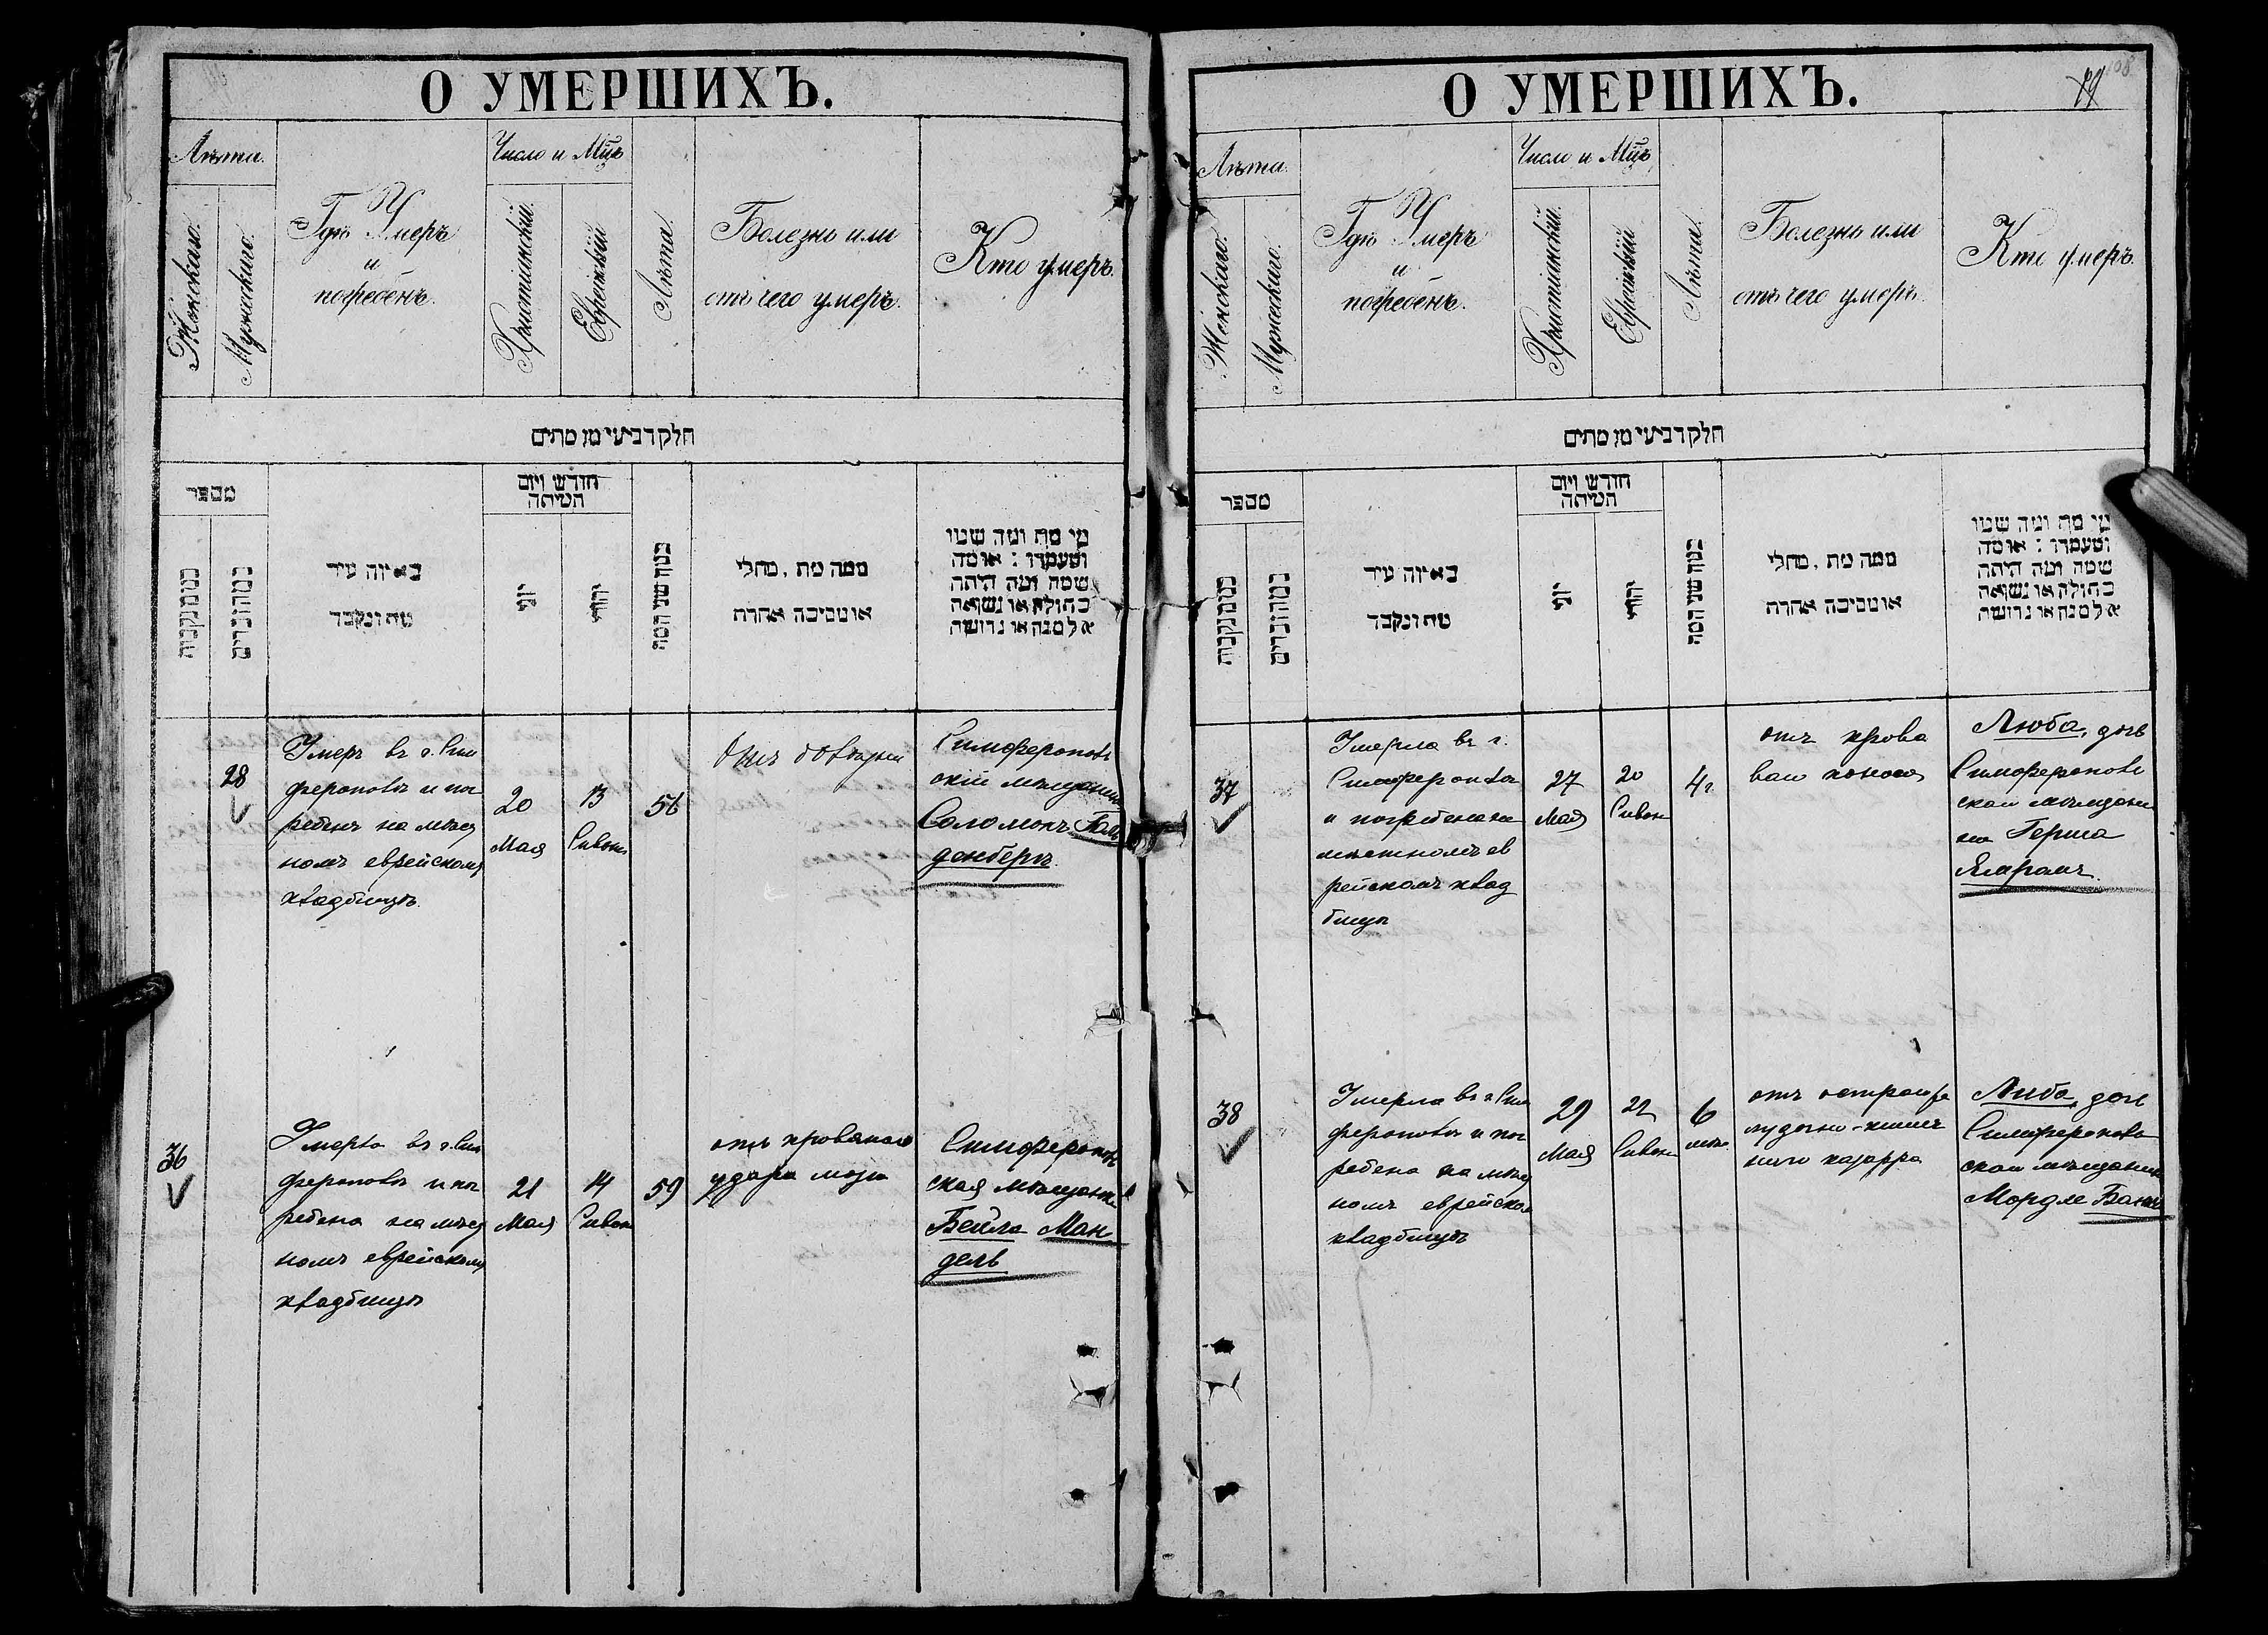 О УМЕРШИХЪ.
Лѣта.
Женскаго.
Мужескаго.
Гдѣ Умеръ
и
погребенъ.
Число и Мц҃ъ
Христіанскій.
Еврейскій
Лѣта.
Болезнь или
отъ чего умеръ.
Кто умеръ.
חלק רביעי מן מתים
מספר
כמה מנקבות
כמה זכרים
באיזה עיר
מת ונקבר
חודש ויום
המיתה
יוני
יהודי
כמה שני המת
ממה מת, מחלי
או מסיבה אחרת
מי מת ומה שמו
ומעמדו : או מה
שמה ומה היתה
בתולה או נשואה
אלמנה או גרושה
28
Умеръ въ г. Сим
ферополѣ и пог
ребенъ на мѣст
номъ еврейскомъ
кладбищѣ.
20
Мая
13
Сивонъ
56
Симферополь
скій мѣщанинъ
Соломонъ Голь
денбергъ.
36
Умерла въ г. Сим
ферополѣ и пог
ребена на мѣст
номъ еврейскомъ
кладбищѣ
21
Мая
14
Сивонъ
59
отъ кровянаго
удара мозга
Симферополь
ская мѣщанка
Бейла Ман
дель
О УМЕРШИХЪ.
108
Лѣта.
Женскаго.
Мужескаго.
Гдѣ Умеръ
и
погребенъ.
Число и Мц҃ъ
Христіанскій.
Еврейскій
Лѣта.
Болезнь или
отъ чего умеръ.
Кто умеръ.
חלק רביעי מן מתים
מספר
כמה מנקבות
כמה זכרים
באיזה עיר
מת ונקבר
חודש ויום
המיתה
יוני
יהודי
כמה שני המת
ממה מת, מחלי
או מסיבה אחרת
מי מת ומה שמו
ומעמדו : או מה
שמה ומה היתה
בתולה או נשואה
אלמנה או גרושה
37
Умерла въ г.
Симферополѣ
и погребена на
мѣстномъ ев
рейскомъ клад
бищѣ
27
Мая
20
Сивонъ
4 г.
отъ крова
ваго поноса
Люба, дочь
Симферополь
скаго мѣщани
на Герша
38
Умерла въ г. Сим
ферополѣ и пог
ребена на мѣст
номъ еврейском
кладбищѣ
29
Мая
22
Сивонъ
6
мѣс.
отъ остраго же
лудочно-кишеч
наго катарра
Либа, дочь
Симферополь
скаго мѣщанина
Мордле